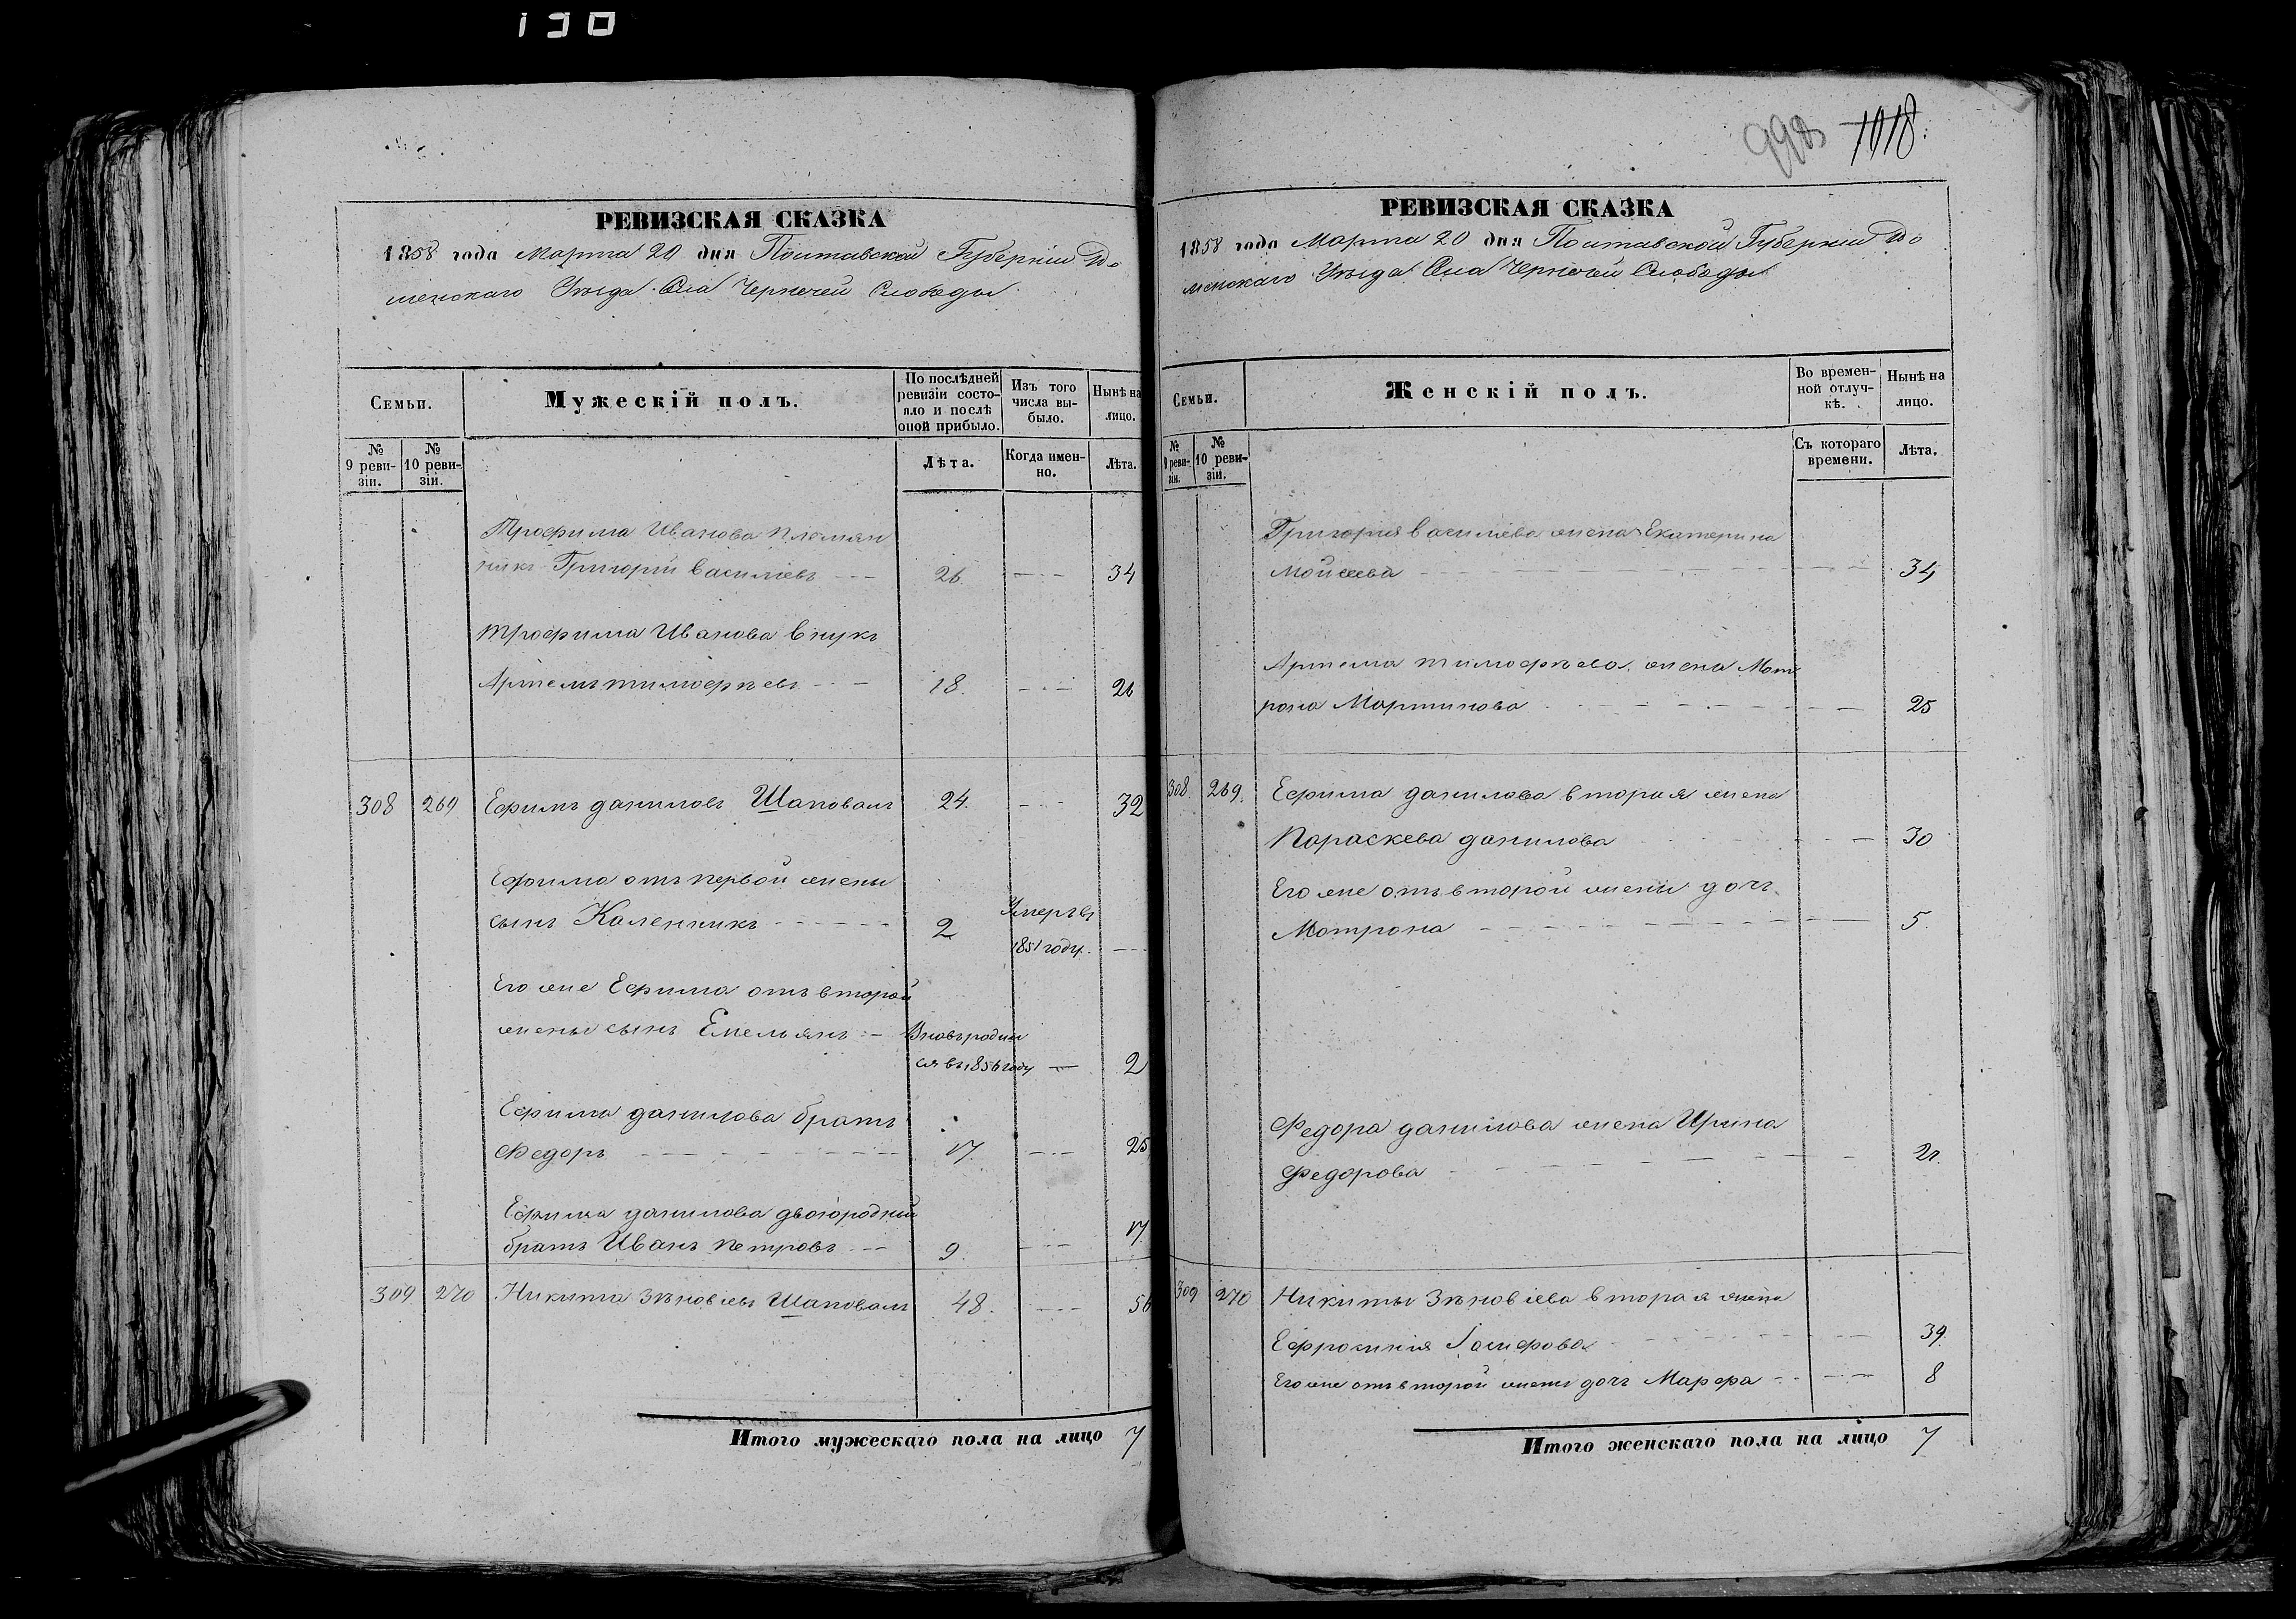 130
РЕВИЗСКАЯ СКАЗКА
1858 года Марта 20 дня Полтавской Губернии Ро
менскаго Уезда Села Чернечей Слободы
Семьи.
Мужескій полъ.
По послѣдней
ревизіи состо-
яло и послѣ
оной прибыло.
Изъ того
числа вы-
было.
Нынѣ на
лицо.
№
9 реви-
зіи.
№
10 реви-
зіи.
Лѣта.
Когда имен-
но.
Лѣта.
Трофима Иванова племян
никъ Григорій Васильевъ 26. 34
Трофима Иванова внукъ
Артемъ Тимофѣевъ 18. 26
308 269 Ефимъ Даниловъ Шаповалъ 24. 32
Ефима отъ первой жены
сынъ Каленникъ 2 Умеръ въ
1851 году.
Его же Ефима отъ второй
жены сынъ Емельянъ Вновь родил
ся въ 1856 году 2
Ефима Данилова братъ
Федоръ 17. 25
Ефима Данилова двоюродный
братъ Иванъ Петровъ 9. 17
309 270 Никита Зѣновіевъ Шаповалъ 48. 56
Итого мужескаго пола на лицо 7
998 1018.
РЕВИЗСКАЯ СКАЗКА
1858 года Марта 20 дня Полтавской Губерніи Ро
менскаго Уѣзда Села Чернечей Слободы
Семьи.
Женскій полъ.
Во времен-
ной отлуч-
кѣ.
Нынѣ на
лицо.
№
9 реви-
зіи.
№
10 реви-
зіи.
Съ котораго
времени.
Лѣта.
Григорія Василіева жена Екатерина
Мойсеева 34
Артема Тимофѣева жена Мот
рона Мартинова 25
308. 269. Ефима Данилова вторая жена
Параскева Данилова 30
Его же отъ второй жены дочь
Мотрона 5.
Федора Данилова жена Ирина
Федорова 21.
309 270 Никиты Зѣновіева вторая жена
Ефросинія Іосифова 39.
Его же отъ второй жены дочь Марфа 8
Итого женскаго пола на лицо 7